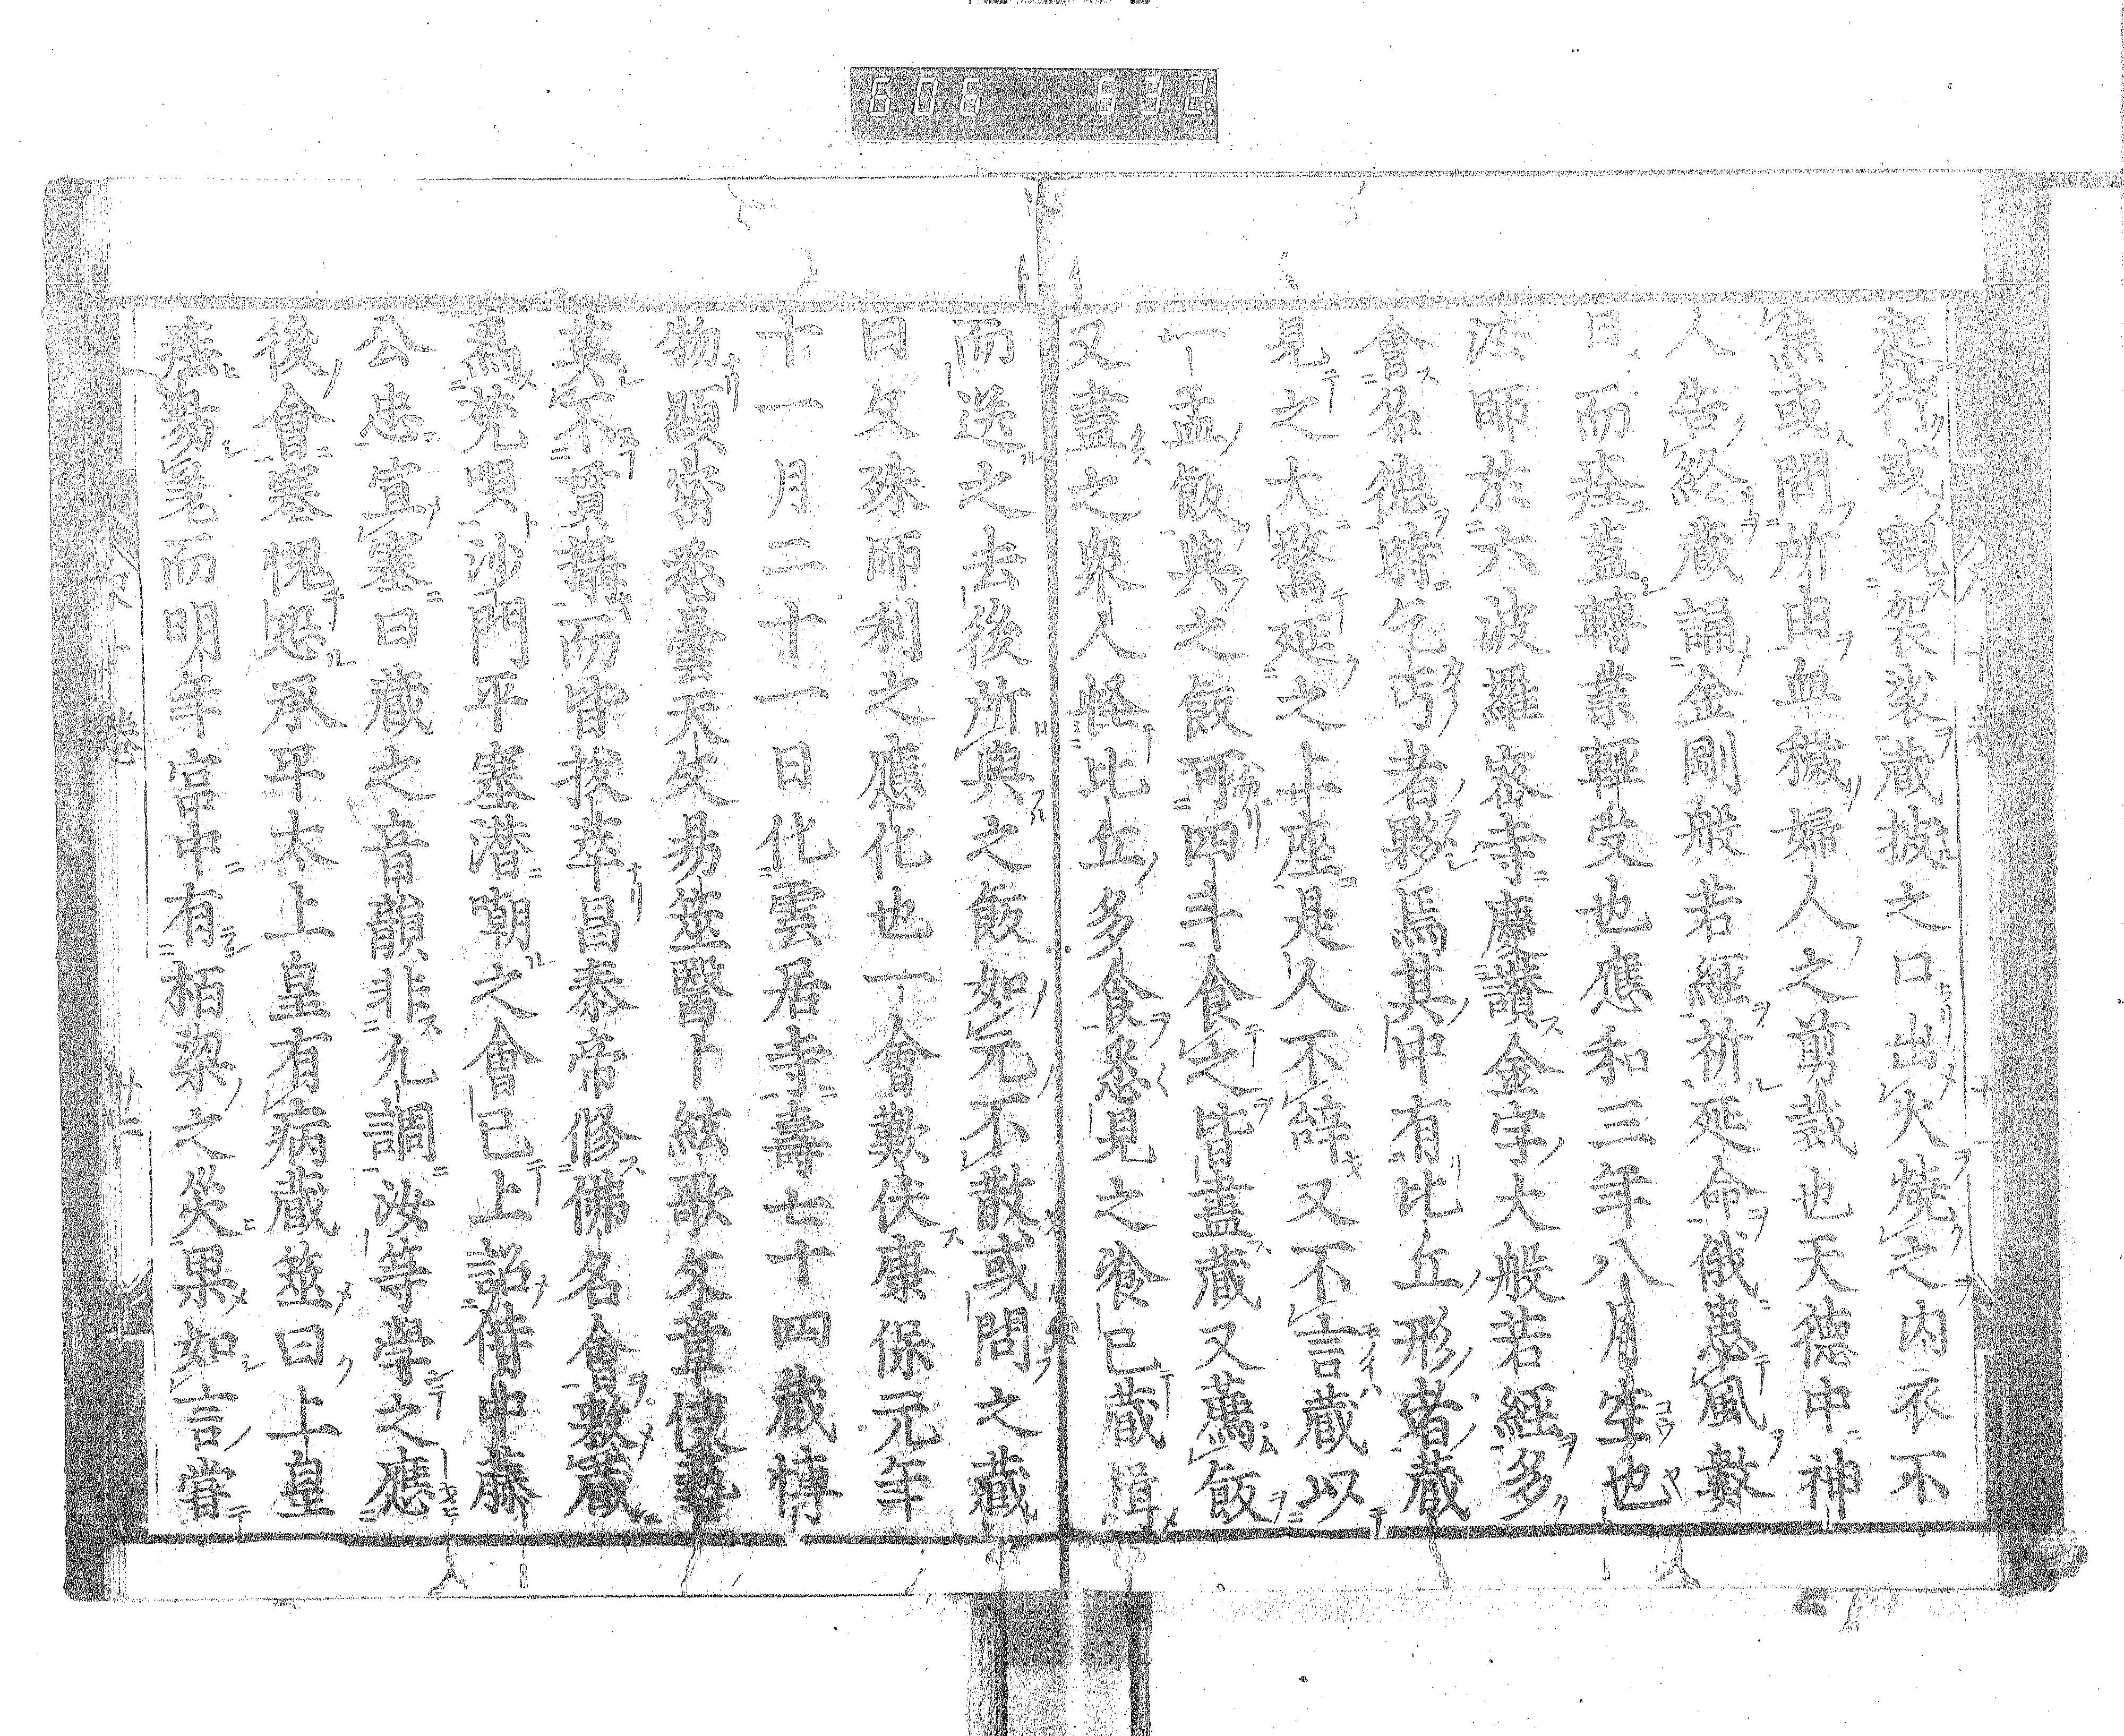 606 632
起行或親袈裟蔵披之口出火燒之内衣不
焦或問所由血穢婦人之剪裁也天德中神
人告終蔵誦金剛般若經祈延命俄患風數
日而痊蓋轉業輕受也應和三年八月空也
法師於六波羅密寺慶讃金字大般若經多
會名德時乞丐者夥焉其中有比丘形者蔵
見之大驚延之上座是人不辞又不言蔵以
一盂飯與之飯可四斗食之皆盡蔵又薦飯
又盡之衆人怪比丘多食悉見之飡已蔵揖
而送之去後所與之飯如元不散或問之蔵
曰文殊師利之應化也一會歎伏康保元年
十一月二十一日化雲居寺壽七十四蔵博
物顯密悉曇天文易筮醫卜絃歌文章伎藝
莫不貫攝而皆拔萃昌泰帝修佛名會敕蔵
爲梵唄沙門平塞潜嘲之會已上詔侍中藤
公忠宣塞曰蔵之音韻非凡調汝等學之應
後會塞愧恐承平太上皇有病蔵筮曰上皇
恙易差而明年宮中有栢梁之災果如言嘗
卷
廿二